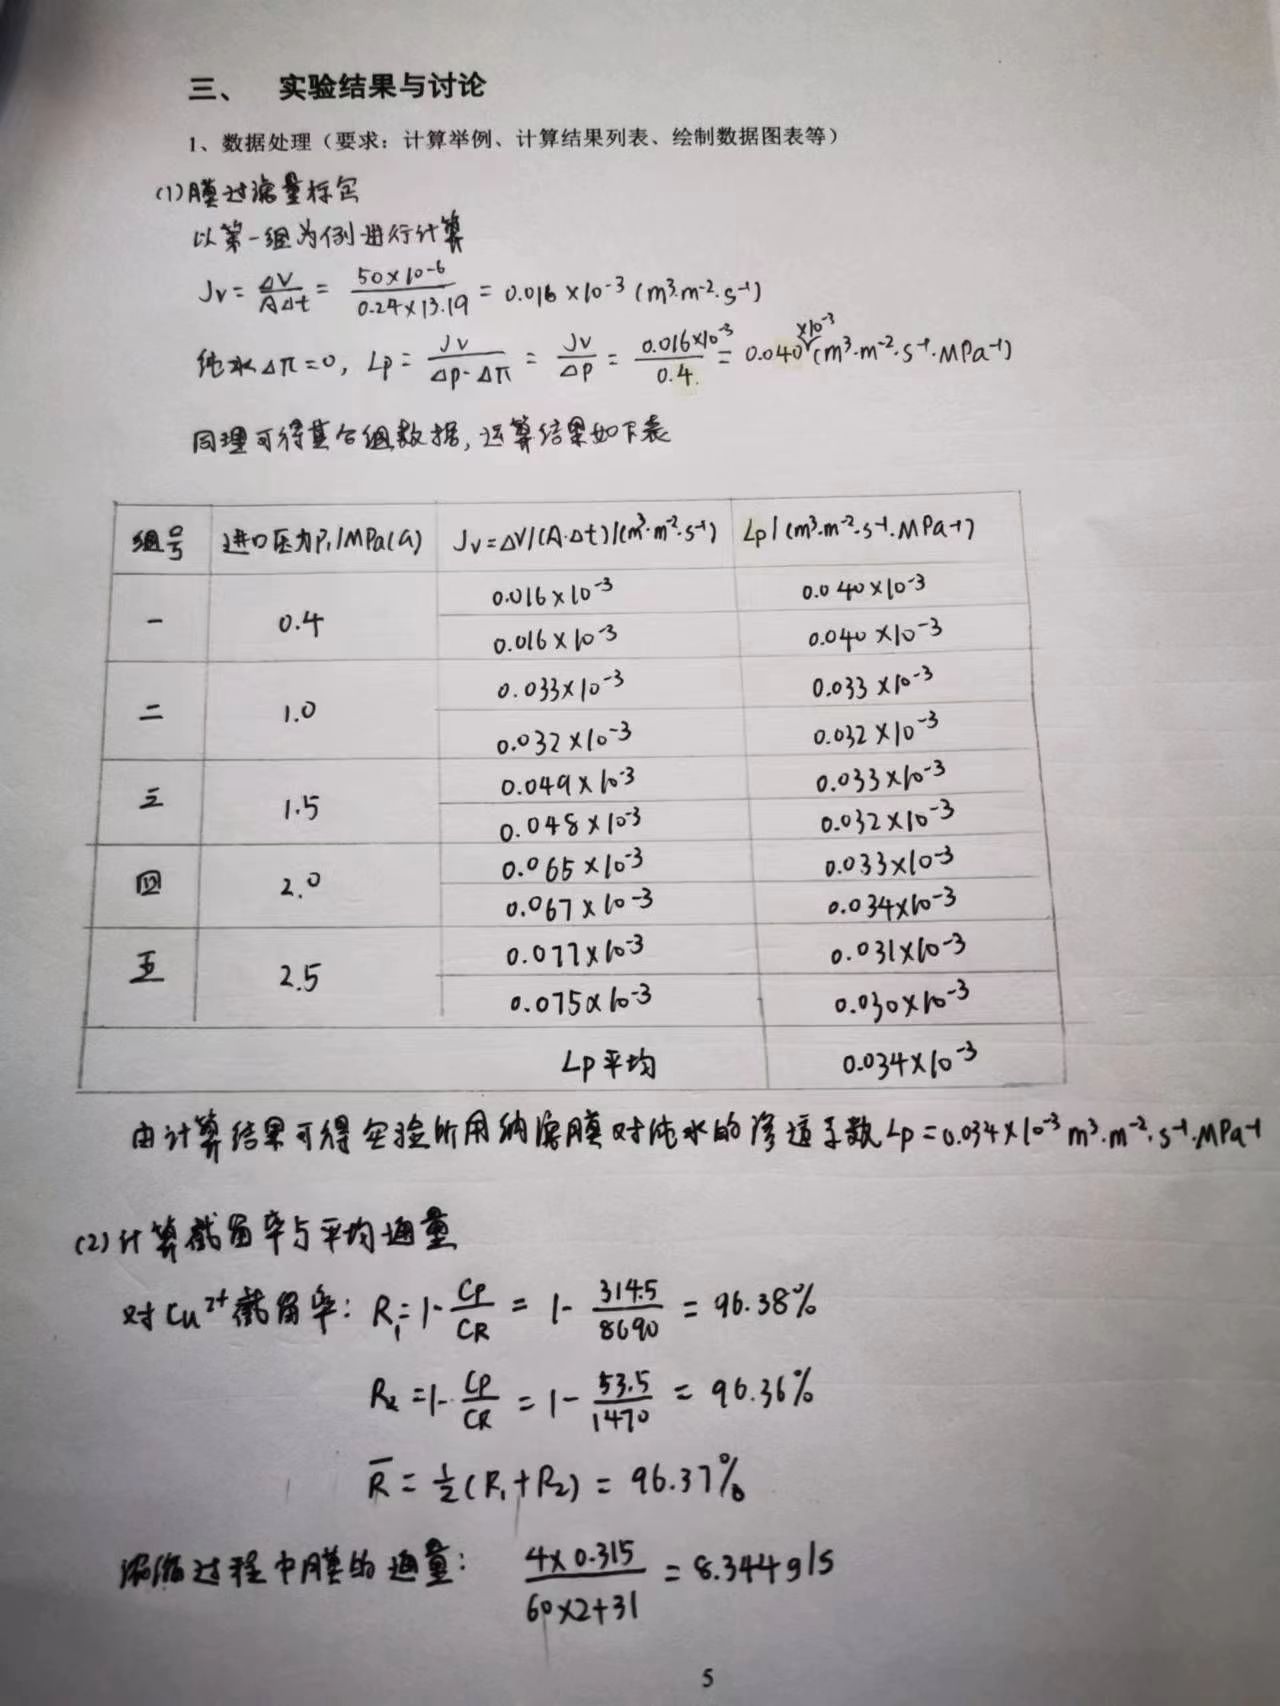 三、 实验结果与讨论
1、数据处理（要求：计算举例、计算结果列表、绘制数据图表等）
(1)膜过滤量标定
以第一组为例进行计算
Jv = ΔV/AΔt = 50×10⁻⁶/0.24×13.19 = 0.016×10⁻³ (m³·m⁻²·s⁻¹)
纯水Δπ=0, Lp = Jv/Δp-Δπ = Jv/Δp = 0.016×10⁻³/0.4 = 0.040×10⁻³ (m³·m⁻²·s⁻¹·MPa⁻¹)
同理可得其余组数据,运算结果如下表
组号 进口压力P₁/MPa(G) Jv=ΔV/(A·Δt)/(m³·m⁻²·s⁻¹) Lp/(m³·m⁻²·s⁻¹·MPa⁻¹)
一 0.4 0.016×10⁻³ 0.040×10⁻³
0.016×10⁻³ 0.040×10⁻³
二 1.0 0.033×10⁻³ 0.033×10⁻³
0.032×10⁻³ 0.032×10⁻³
三 1.5 0.049×10⁻³ 0.033×10⁻³
0.048×10⁻³ 0.032×10⁻³
四 2.0 0.065×10⁻³ 0.033×10⁻³
0.067×10⁻³ 0.034×10⁻³
五 2.5 0.077×10⁻³ 0.031×10⁻³
0.075×10⁻³ 0.030×10⁻³
Lp平均 0.034×10⁻³
由计算结果可得实验所用纳滤膜对纯水的渗透系数Lp=0.034×10⁻³m³·m⁻²·s⁻¹·MPa⁻¹
(2)计算截留率与平均通量
对Cu²⁺截留率: R₁=1-CP/CR = 1-314.5/8690 = 96.38%
R₂=1-CP/CR = 1-53.5/1470 = 96.36%
R̄ = ½(R₁+R₂) = 96.37%
浓缩过程中膜的通量: 4×0.315/60×2+31 = 8.344g/s
5